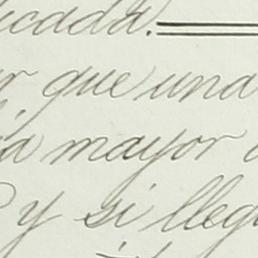 icada.
r que una
a mayor
y si lleg